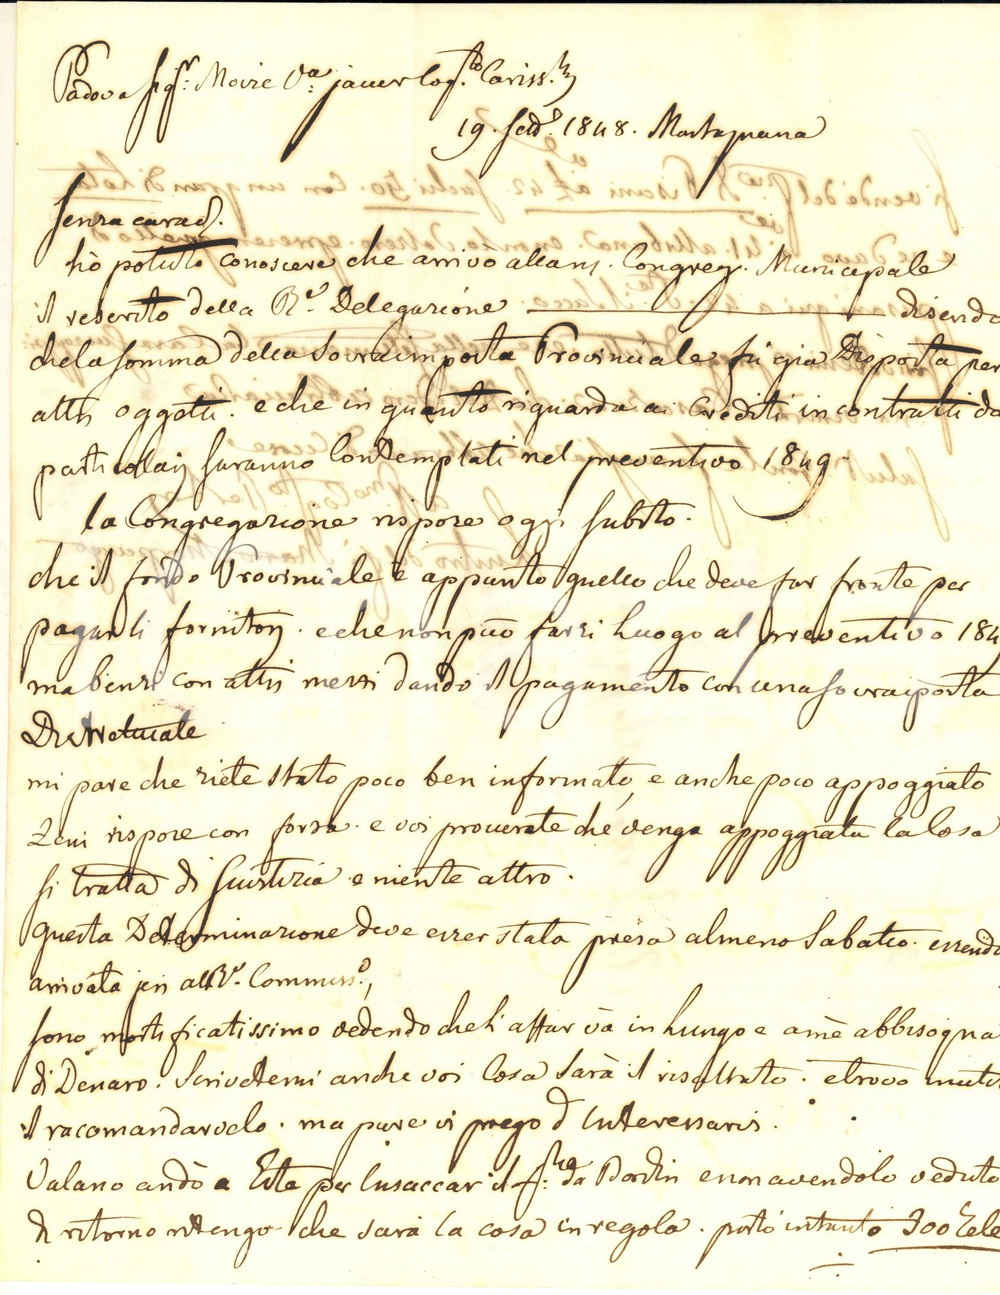 Padova Sigr. Moisè Va. Jacur Cogto. Cariss.
19. Sett. 1848. Montagnana
Senza cavad.
hò potuto conoscere che arrivò alla Congreg. Municipale
il rescritto della Ra. Delegazione dicendo
che la somma della Sovraimposta Provinciale fù gia Disposta per
altri oggetti. e che in quanto riguarda ai Crediti incontratti da
particolari saranno Contemplati nel preventivo 1849.
la Congregazione rispose oggi subito.
che il fondo Provinciale è appunto quello che deve far fronte per
pagar li fornitorj. e che non può farsi luogo al preventivo 184
ma bensì con altri mezzi dando il pagamento con una Sovraiposta
Distretuale
mi pare che siete stato poco ben informato, e anche poco appoggiato
Zeni rispose con forza. e voi procurate che venga appoggiata la Cosa
si tratta di Giustizia e niente altro.
questa Determinazione deve esser stata presa almeno Sabato. essendo
arivata jeri al R. Commiss.,
sono mortificatissimo vedendo che l'affar và in lungo e a mè abbisogna
di Denaro. Scrivetemi anche voi Cosa Sarà il risultato. e trovo inutil
il racomandarvelo. ma pure vi prego d'interessarvi.
Valano andò a Este per insaccar il da Bordin e non avendolo veduto
di ritorno ritengo che sarà la cosa in regola. portò intanto 300